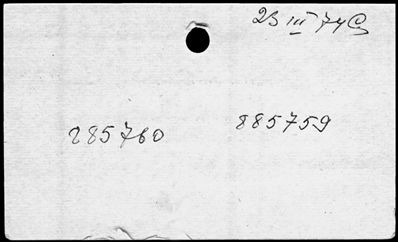 23 III 74
285760 885759